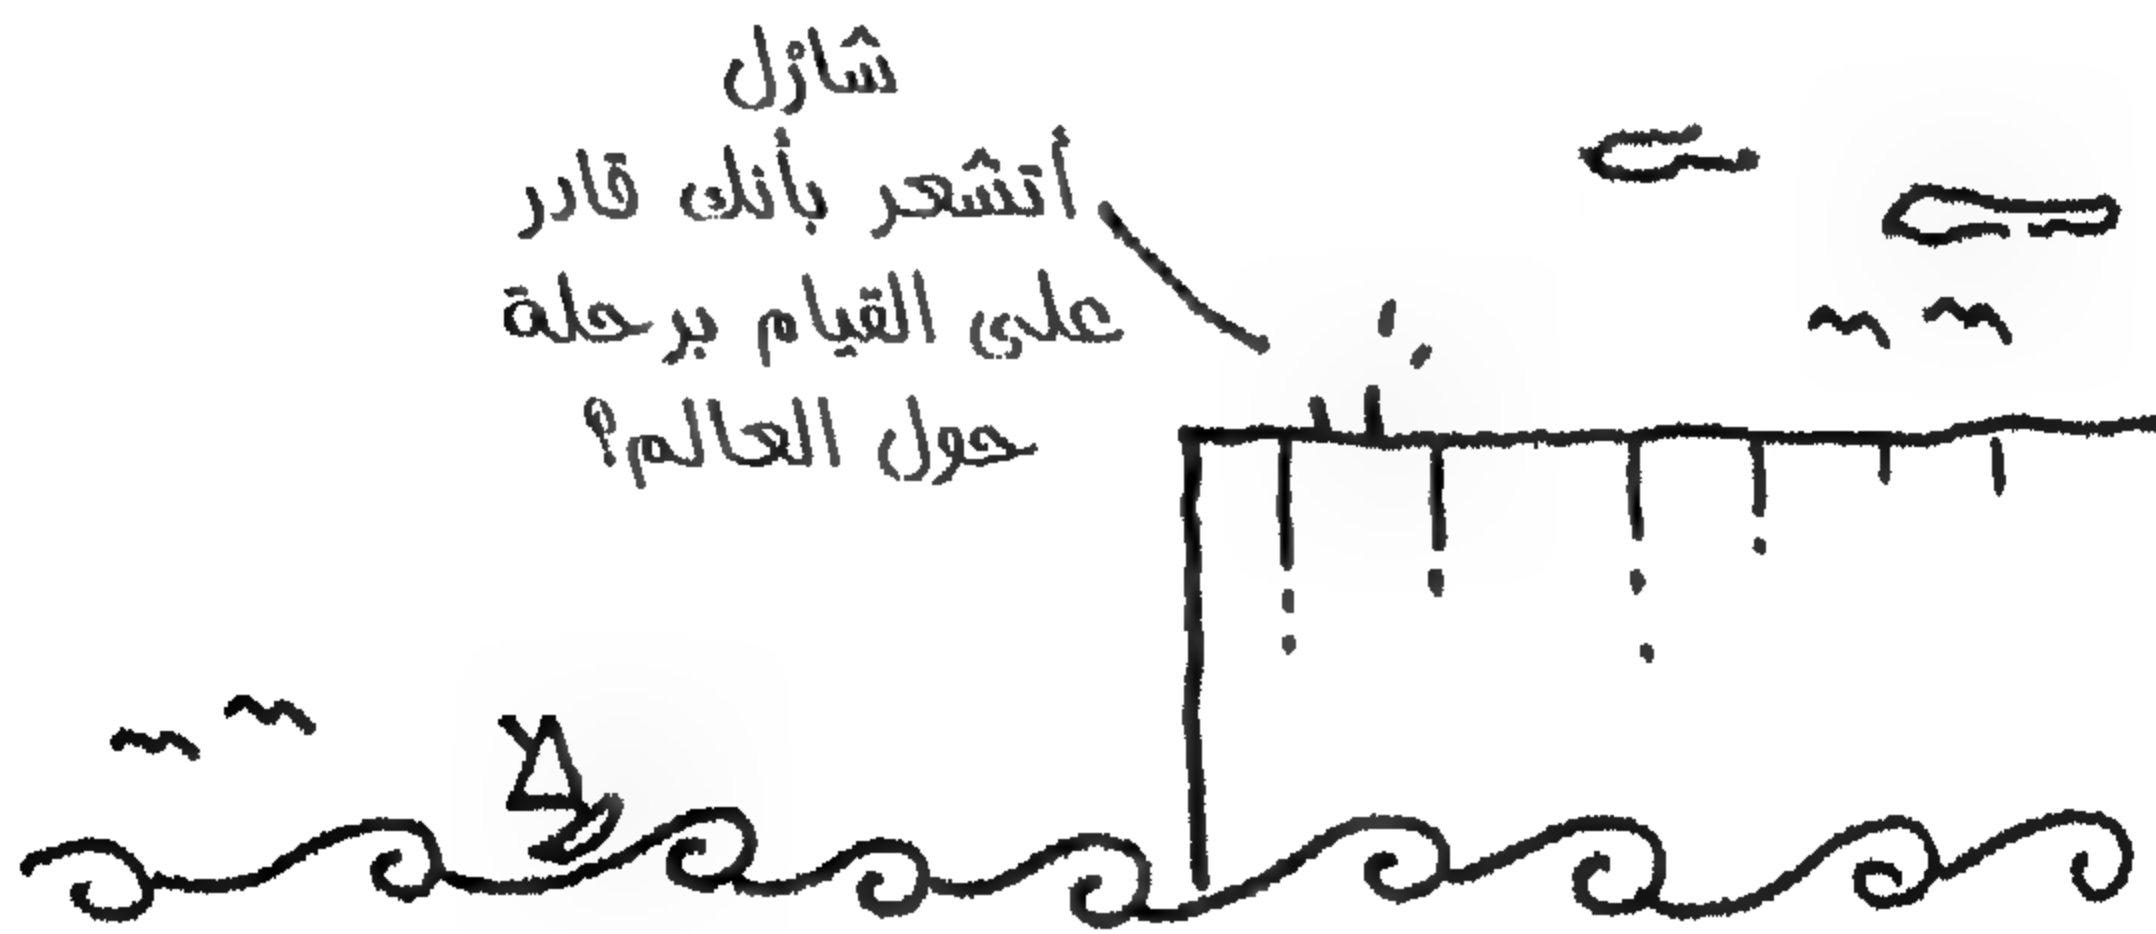 شارل
أتشعر بأنك قادر
على القيام برحلة
حول العالم؟